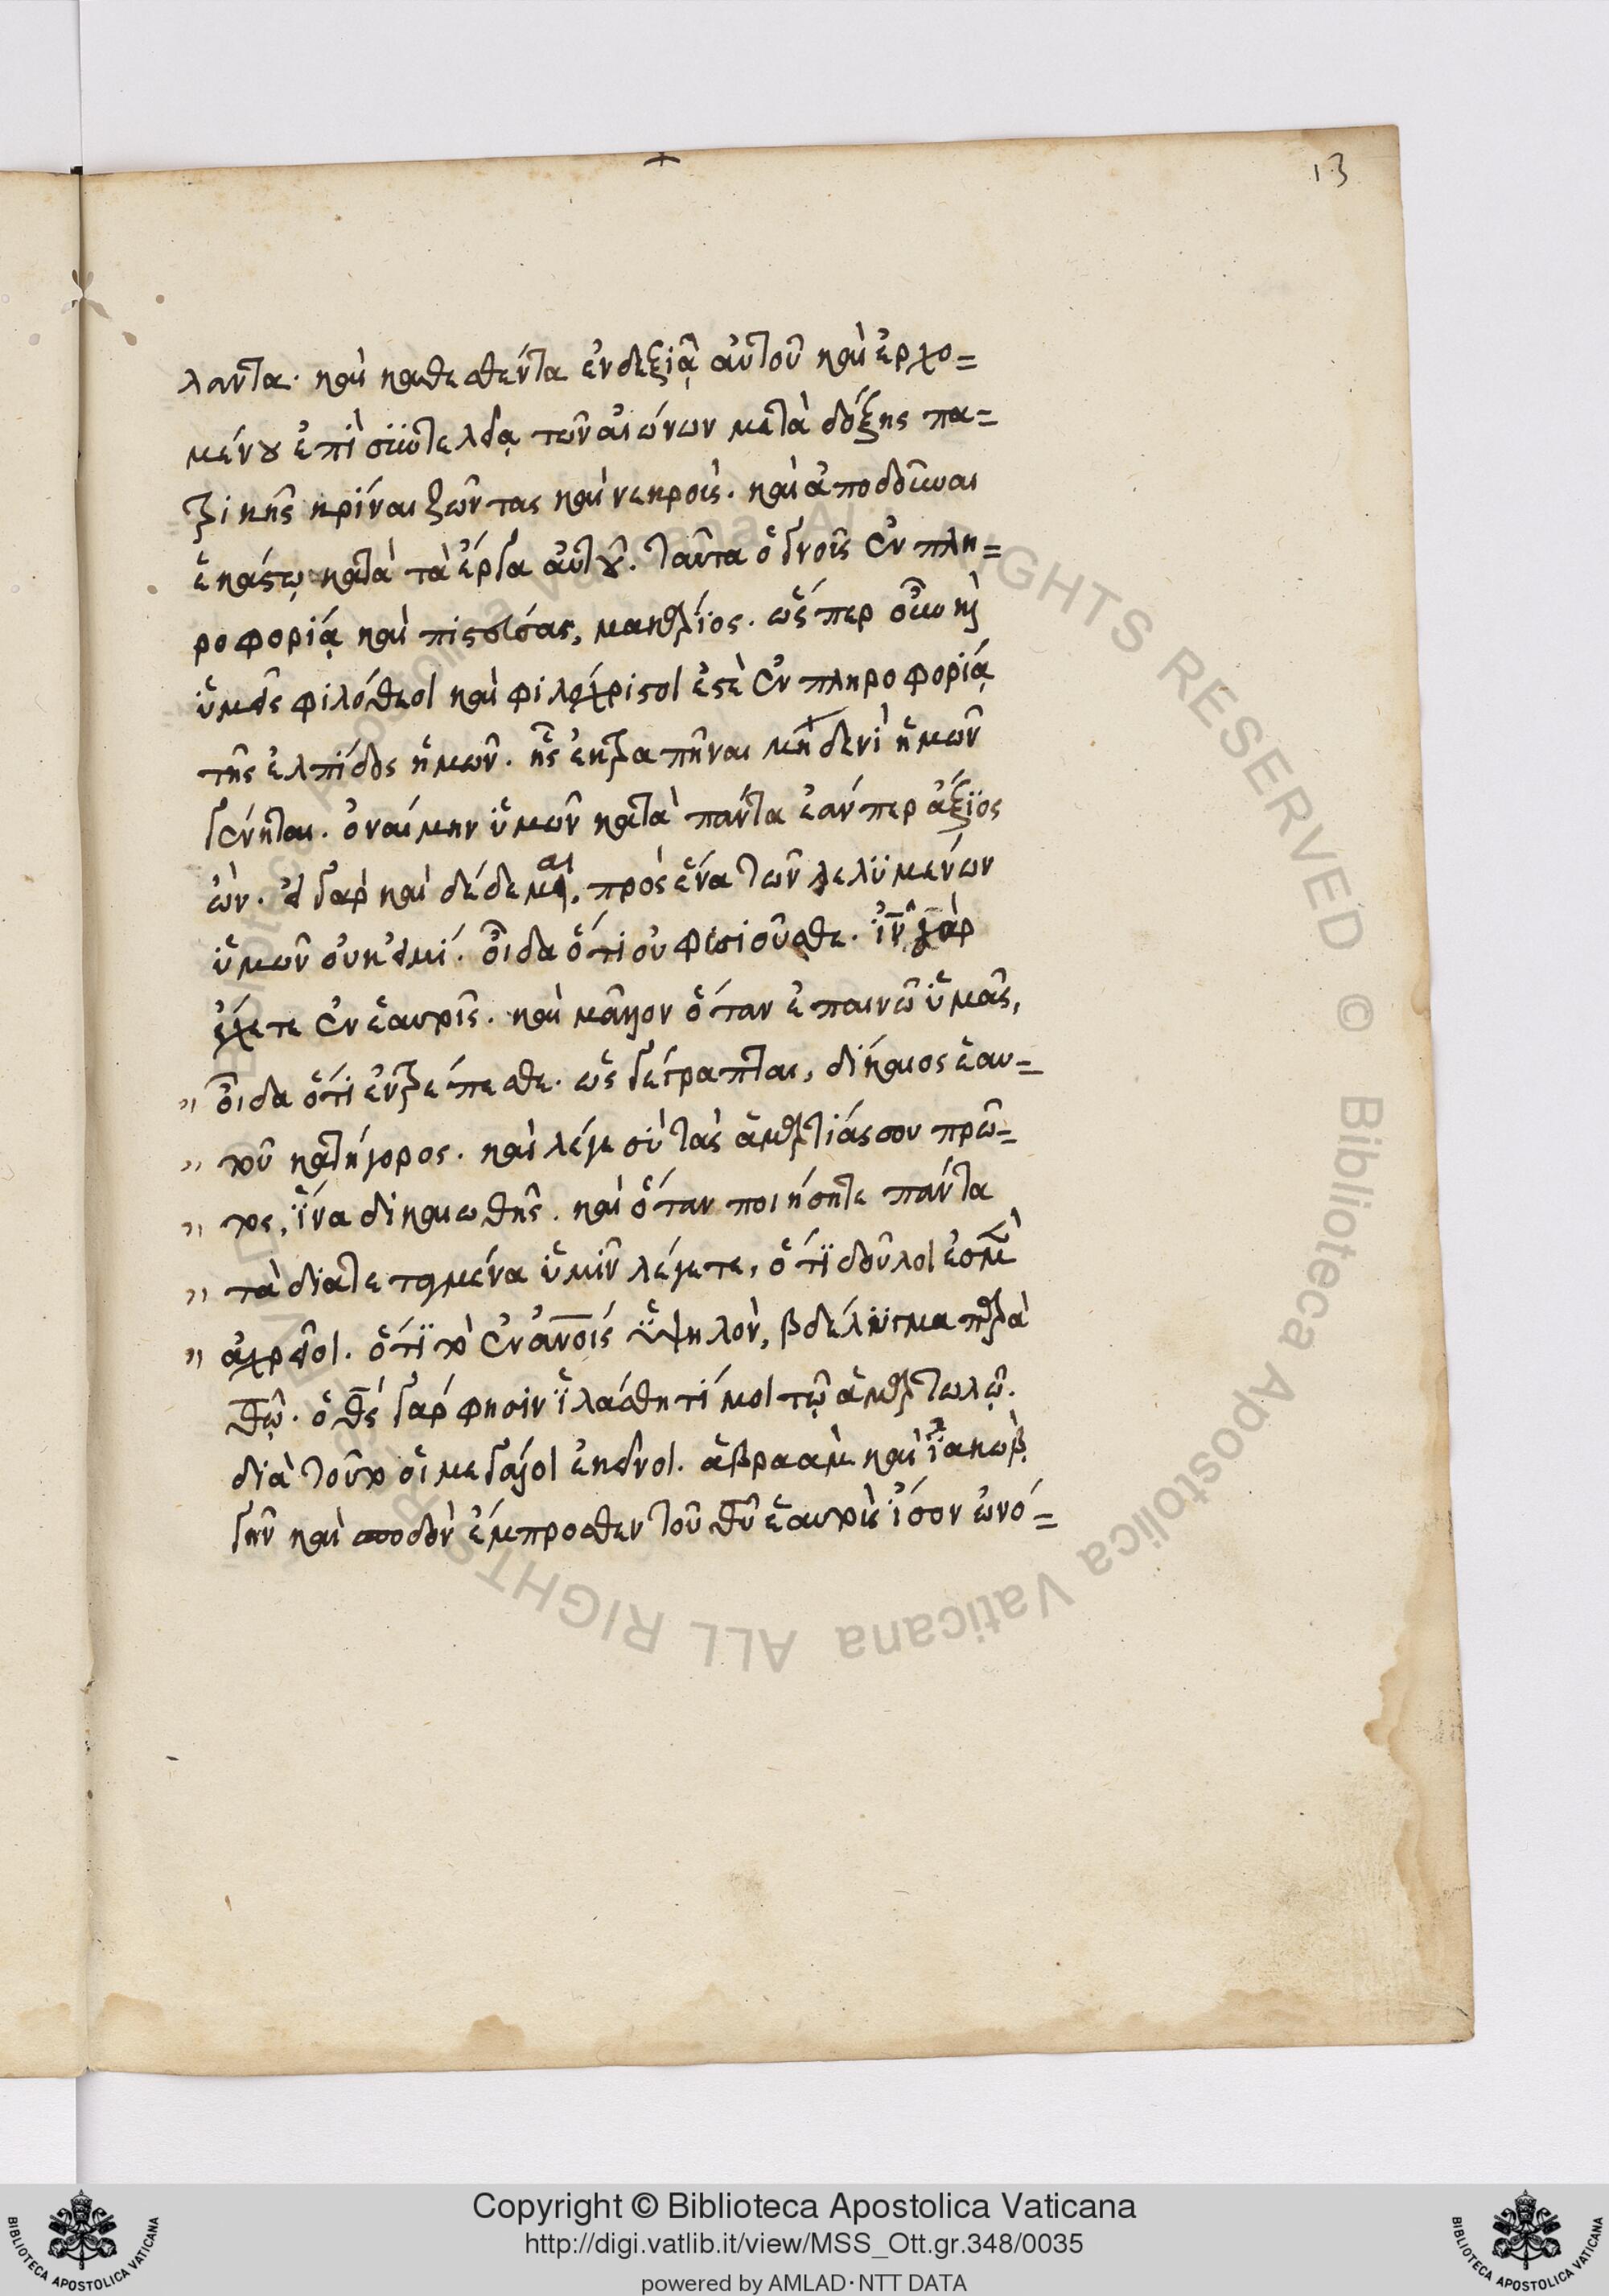 13
λαντα· καὶ καθεσθέντα ἐν δεξιᾷ αὐτοῦ καὶ ἐρχο=
μένου ἐπὶ σϋντελείᾳ τῶν αἰώνων μετὰ δόξης πα=
τρικῆς κρίναι ζῶντας καὶ νεκροὺς· καὶ ἀποδοῦναι
ἑκάστῳ κατὰ τὰ ἔργα αὐτοῦ. ταῦτα ὁ γνοὺς ἐν πλη=
ροφορίᾳ καὶ πιστεύσας, μακάριος. ὥσπερ οὖν καὶ
ὑμεῖς φιλόθεοι καὶ φιλόχριστοι ἐστὲ ἐν πληροφορίᾳ
τῆς ἐλπίδος ἡμῶν. ἧς ἐκτραπῆναι μηδενὶ ἡμῶν
γένηται. ὀναίμην ὑμῶν κατὰ πάντα ἐάν περ ἄξϊος
ὢν. εἰ γὰρ καὶ δέδεμαι, πρὸς ἕνα τῶν λελϋμένων
ὑμῶν οὐκ εἰμί. οἶδα ὅτι οὐ φυσιοῦσθε. ἰν̅ γὰρ
ἔχετε ἐν ἑαυτοῖς. καὶ μᾶλλον ὅταν ἐπαινῶ ὑμᾶς,
" οἶδα ὅτι ἐντρέπεσθε. ὡς γέγραπται, δίκαιος ἑαυ=
" τοῦ κατήγορος. καὶ λέγε σὺ τὰς ἁμαρτίας σου πρῶ=
" τος, ἵνα δικαιωθῇς. καὶ ὅταν ποιήσητε πάντα
" τὰ διατεταγμένα ὑμῖν λέγετε, ὅτϊ δοῦλοι ἐσμὲν
" ἀχρεῖοι. ὅτϊ τὸ ἐν ἀνοις ὑψηλὸν, βδέλϋγμα παρὰ
θω. ὁ θς γάρ φησιν ἱλάσθητί μοι τῷ ἁμαρτωλῷ.
διὰ τοῦτο οἱ μεγάλοι ἐκεῖνοι. ἁβραὰμ καὶ ἰακὼβ
γῆν καὶ σποδὸν ἔμπροσθεν τοῦ θυ ἑαυτοὺς ἴσον ὠνό=
Copyright © Biblioteca Apostolica Vaticana
http://digi.vatlib.it/view/MSS_Ott.gr.348/0035
powered by AMLAD·NTT DATA